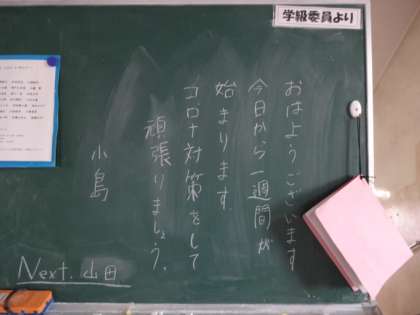 学級委員より
おはようございます
今日から一週間が
始まります
コロナ対策をして
頑張りましょう。
小島
Next. 山田